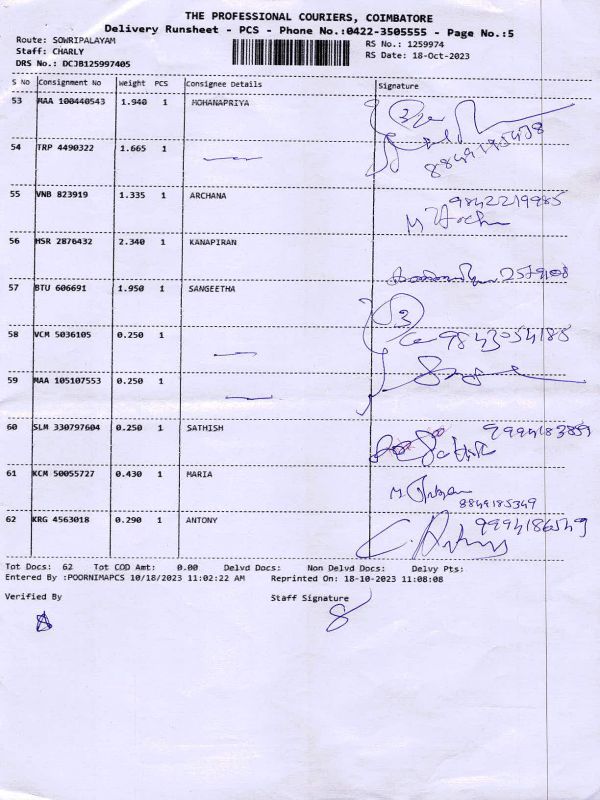 THE PROFESSIONAL COURIERS, COIMBATORE
Delivery Runsheet - PCS - Phone No.:0422-3505555 - Page No.:5
Route: SOWRIPALAYAM
Staff: CHARLY
DRS No.: DCJB125997405
RS No.: 1259974
RS Date: 18-Oct-2023
S No Consignment No Weight PCS Consignee Details Signature
53 MAA 100440543 1.940 1 MOHANAPRIYA
54 TRP 4490322 1.665 1
55 VNB 823919 1.335 1 ARCHANA 9842219985
56 HSR 2876432 2.340 1 KANAPIRAN
57 BTU 606691 1.950 1 SANGEETHA
58 VCM 5036105 0.250 1 9843054185
59 MAA 105107553 0.250 1
60 SLM 330797604 0.250 1 SATHISH
61 KCM 50055727 0.430 1 MARIA 8849185349
62 KRG 4563018 0.290 1 ANTONY 9994186549
Tot Docs: 62 Tot COD Amt: 0.00 Delvd Docs: Non Delvd Docs: Delvy Pts:
Entered By :POORNIMAPCS 10/18/2023 11:02:22 AM Reprinted On: 18-10-2023 11:08:08
Verified By Staff Signature